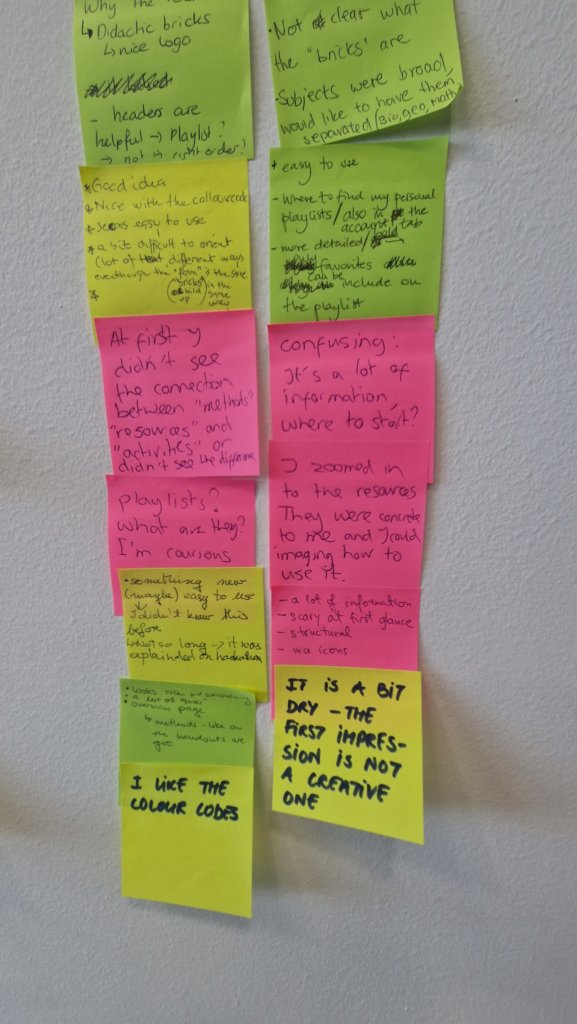 Why the
↳ Didactic bricks
↳ nice logo
- headers are
helpful → Playlist?
→ not in right order?
* Good idea
* Nice with the collourcode
* Seems easy to use
* a bit difficult to orient
(lot of different ways
eventhough the "form" is the same
bricks
build up
is the same way
At first y
didn't see
the connection
between "methods"
"resources" and
"activities" or
didn't see the difference
playlists?
What are they?
I'm courious
• something new
(maybe) easy to use
I didn't know this
before
↳ Not so long → it was
explainded on hackathon
• Looks nice but overwhelming
• a lot of
• overview page
↳ methods - like on
the handouts we
got
I LIKE THE
COLOUR CODES
• Not clear what
the "bricks" are
• Subjects were broad,
would like to have them
separated (Bio, geo, Math)
+ easy to use
- where to find my personal
playlists / also in the
account tab
- more detailed /
favorites
can be
include on
the playlist
confusing:
It's a lot of
information,
where to start?
I zoomed in
to the resources
They were concrete
to me and I could
imaging how to
use it.
- a lot of information
- scary at first glance
- structural
- nice icons
IT IS A BIT
DRY - THE
FIRST IMPRES-
SION IS NOT
A CREATIVE
ONE